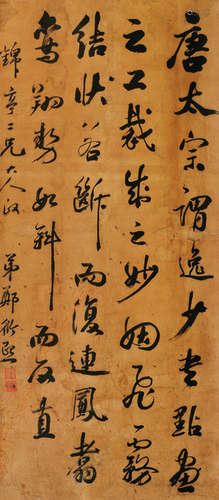 唐太宗謂逸少書點畫
之工裁成之妙烟霏霧
結狀若斷而復連鳳翥
鸞翔勢如斜而反直
錦亭二兄大人政 弟鄭衍熙